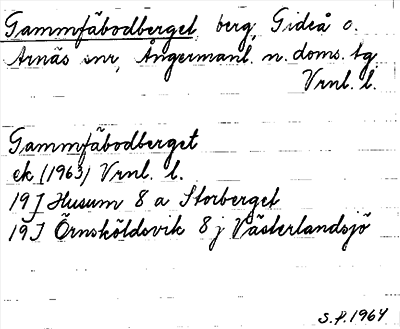 Gammfäbodberget, berg, Gideå o.
Arnäs snr, Ångermanl. n. doms. tg
Vrnl. l.
Gammfäbodberget
ek (1963) Vrnl. l.
19J Husum 8 a Storberget
19J Örnsköldsvik 8 j Västerlandsjö
S.P. 1964